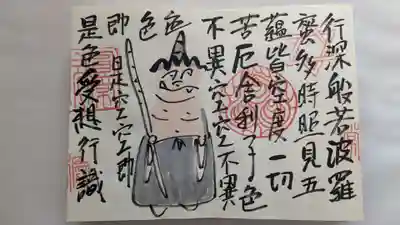 行深般若波羅
蜜多時照見五
蘊皆空度一切
苦厄舎利子色
不異空空不異
色
色
即是空空即
是色受想行識